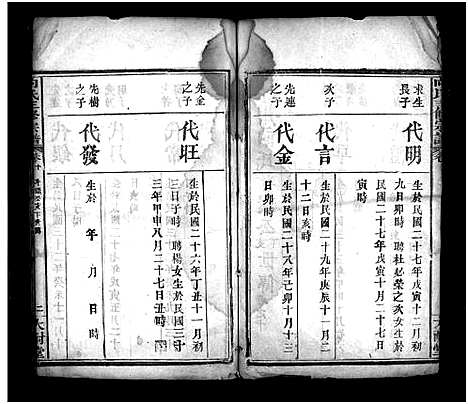 求生
長子
代明
生於民國二十七年戊寅十二月初
九日卯時 聘杜必榮之次女生於
民國二十七年戊寅十月二十七日
寅時
次子
代言
生於民國二十九年庚辰十一月
十二日亥時
先連
之子
代金
生於民國二十八年己卯十月十三
日卯時
先金
之子
代旺
生於民國二十六年丁丑十一月初
三日子時 聘楊女生於民國三十
三年甲申八月二十七日丑時
先樹
之子
代發
生於 年 月 日 時